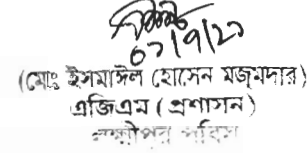 ০৭/৯/২০
(মোঃ ইসমাঈল হোসেন মজুমদার)
এজিএম (প্রশাসন)
লক্ষ্মীপুর পবিস